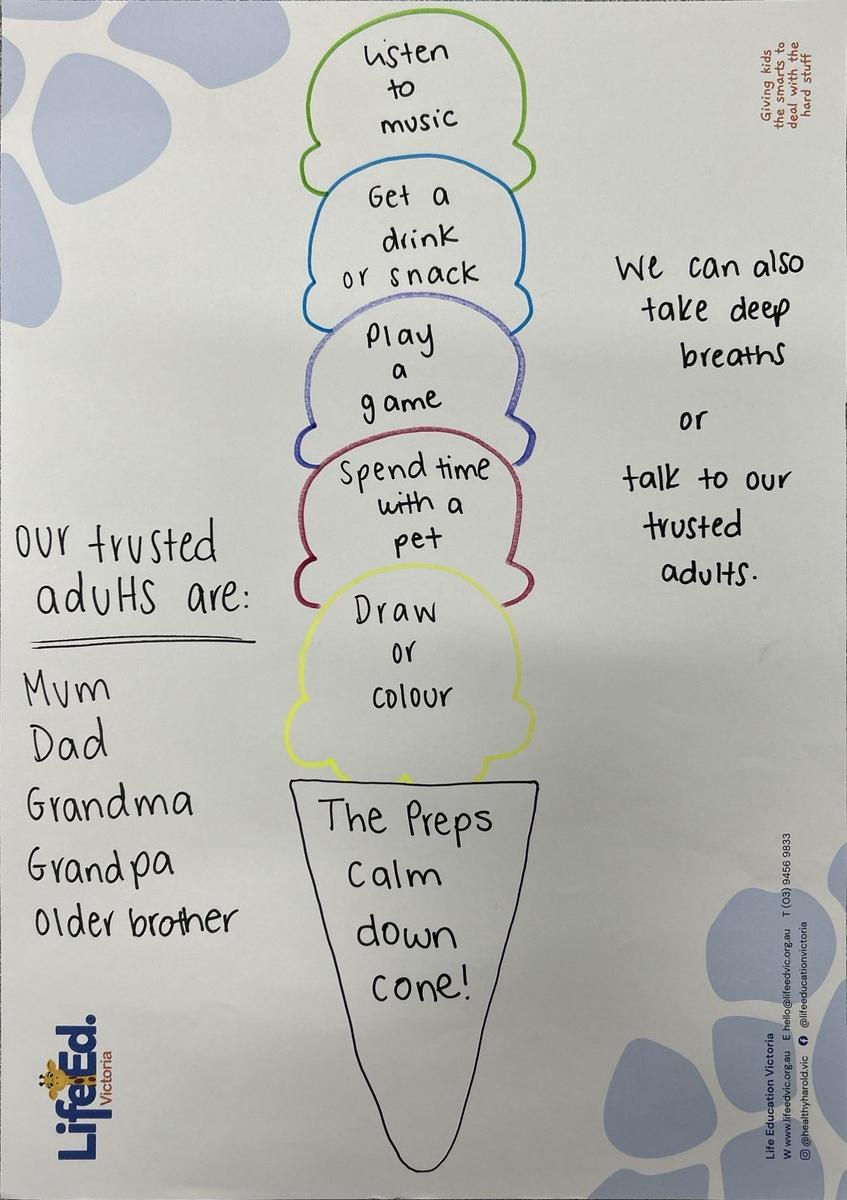 Listen
to
music
Get a
drink
or snack
Play
a
game
Spend time
with a
pet
Draw
or
colour
The Preps
Calm
down
cone!
Our trusted
adults are:
Mum
Dad
Grandma
Grandpa
Older brother
We can also
take deep
breaths
or
talk to our
trusted
adults.
Giving kids
the smarts to
deal with the
hard stuff
Life Ed.
Victoria
Life Education Victoria
W www.lifeedvic.org.au E hello@lifeedvic.org.au T (03) 9456 9833
@healthyharold.vic @lifeeducationvictoria